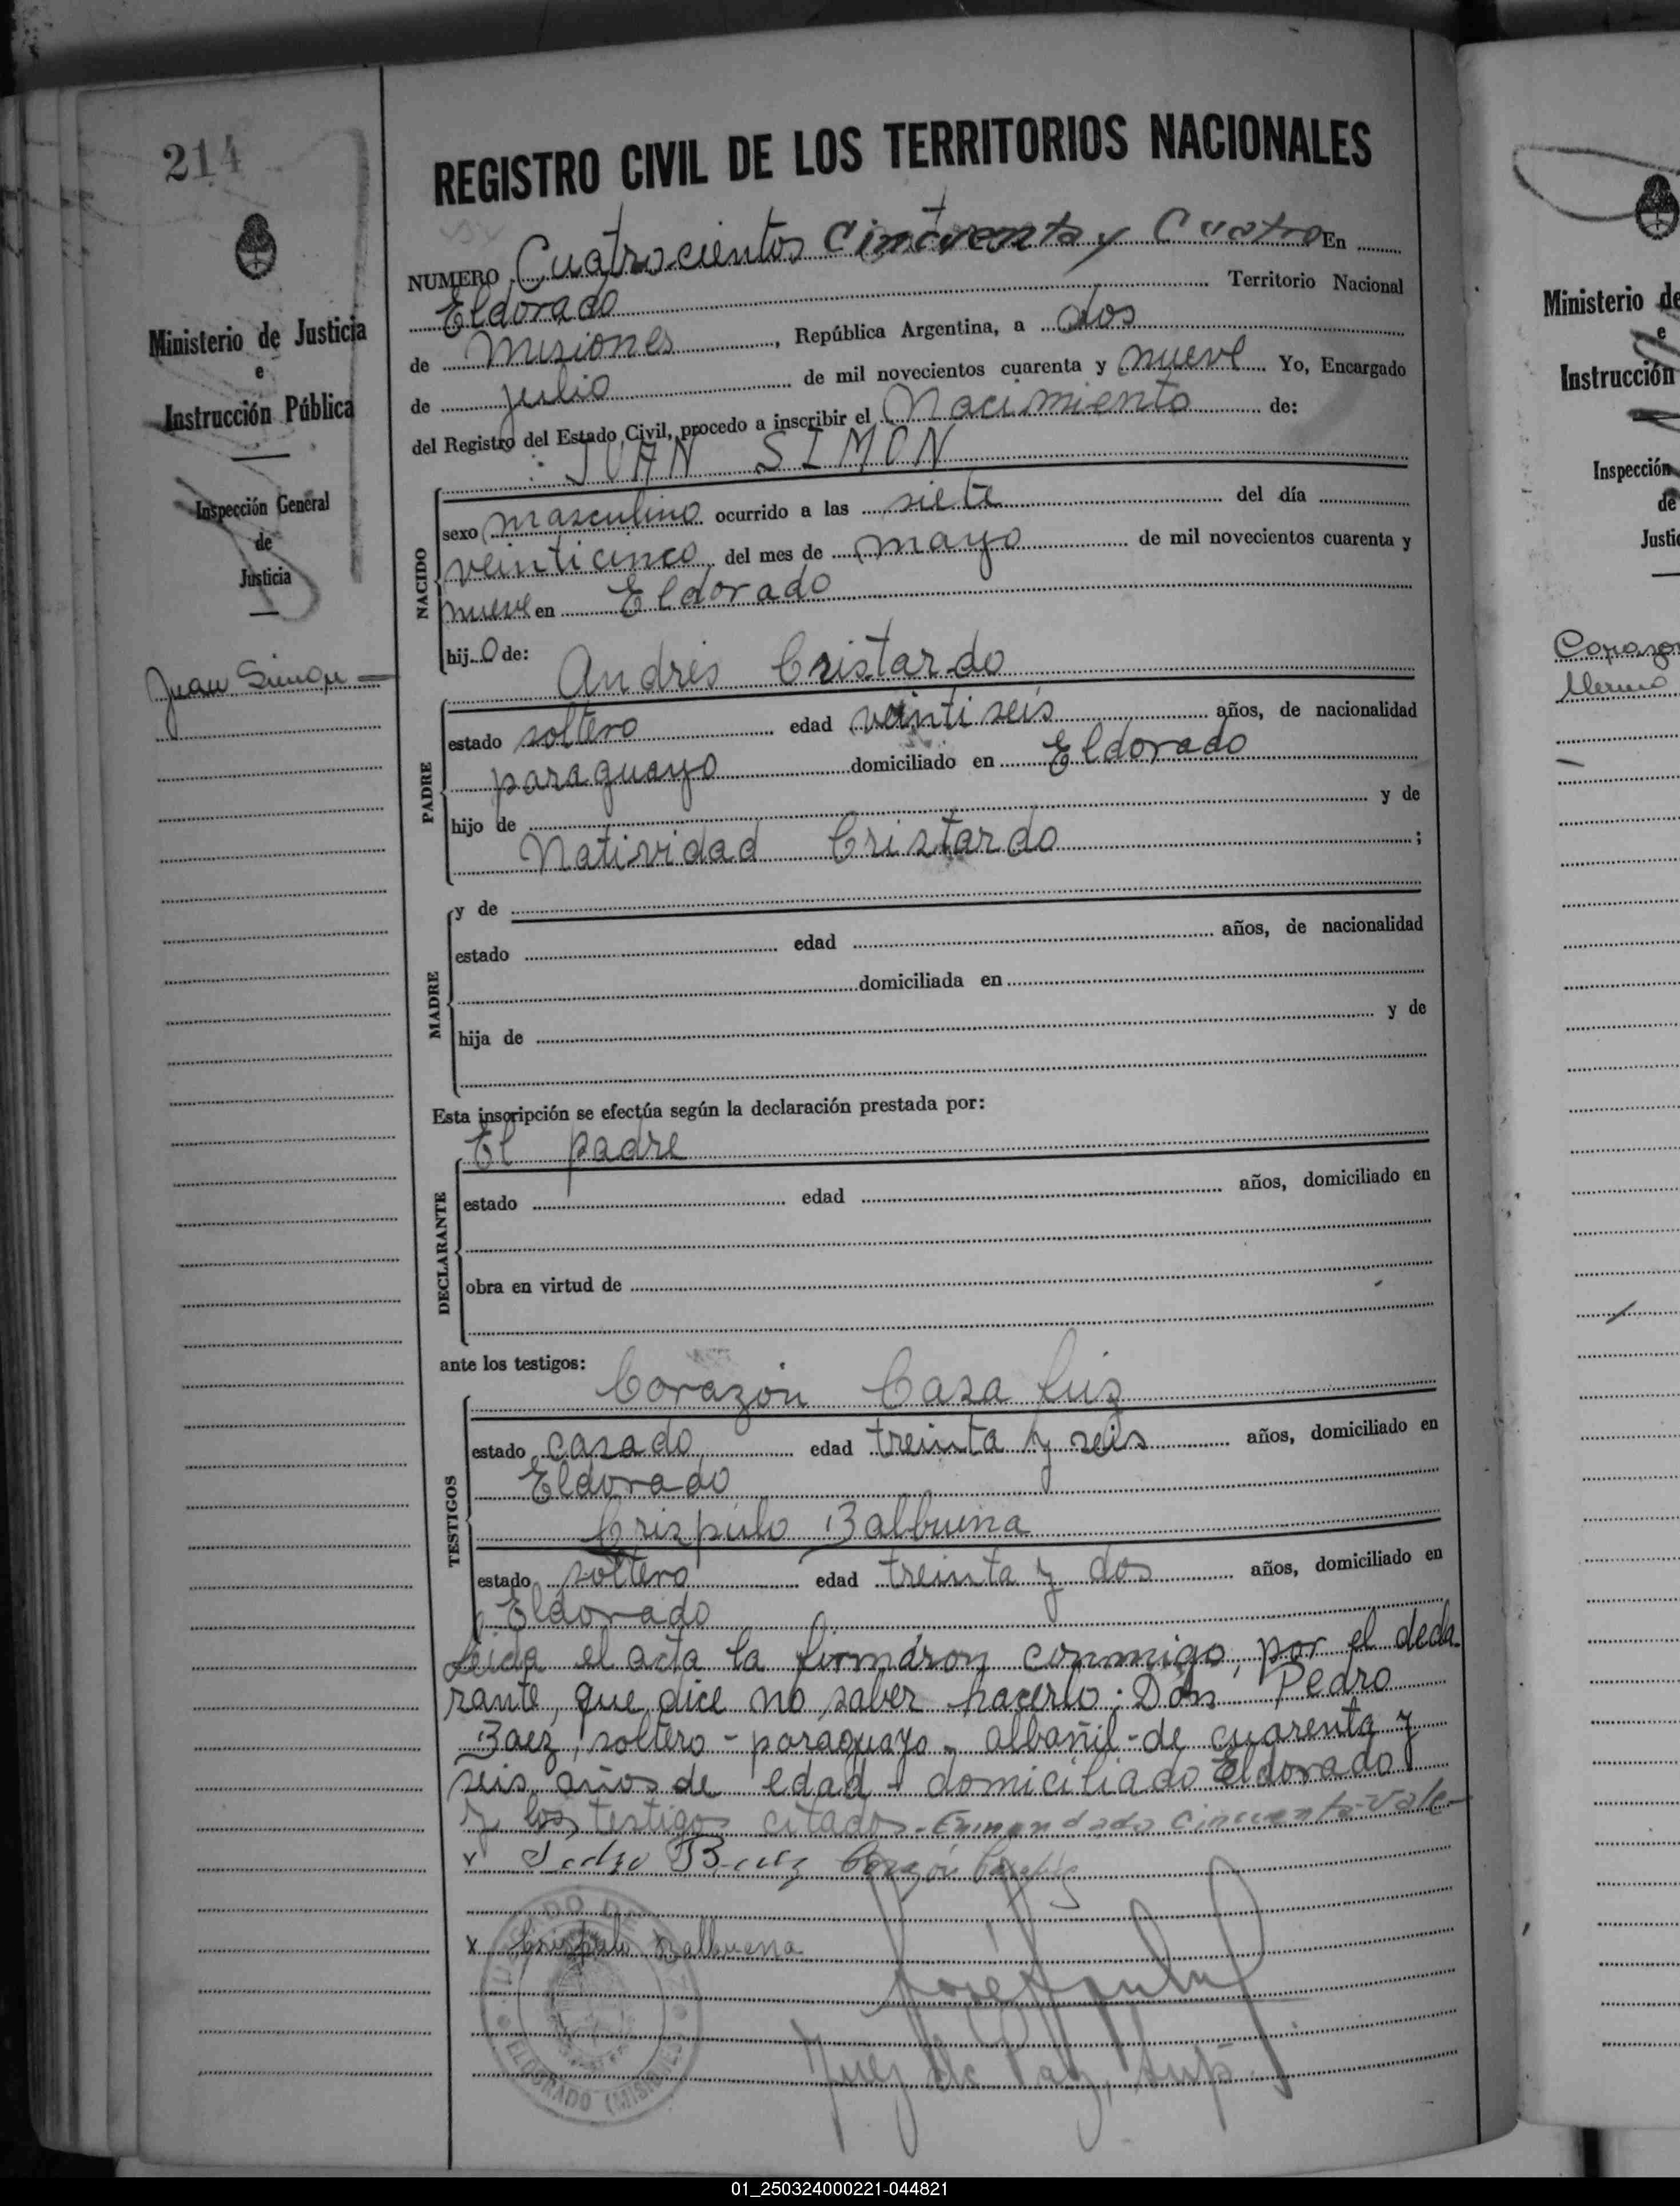 214
REGISTRO CIVIL DE LOS TERRITORIOS NACIONALES
NUMERO Cuatrocientos Cincuenta y Cuatro En
Eldorado Territorio Nacional
de Misiones, República Argentina, a dos
de julio de mil novecientos cuarenta y nueve Yo, Encargado
del Registro del Estado Civil, procedo a inscribir el Nacimiento de:
JUAN SIMON
NACIDO
sexo masculino ocurrido a las siete del día
veinticinco del mes de mayo de mil novecientos cuarenta y
nueve en Eldorado
hijo de:
Andrés Cristardo
PADRE
estado soltero edad veinti seis años, de nacionalidad
paraguayo domiciliado en Eldorado
hijo de y de
Natividad Cristardo ;
MADRE
y de
estado edad años, de nacionalidad
domiciliada en
hija de y de
Esta inscripción se efectúa según la declaración prestada por:
El padre
DECLARANTE
estado edad años, domiciliado en
obra en virtud de
ante los testigos:
Corazón Casa Luis
TESTIGOS
estado casado edad treinta y seis años, domiciliado en
Eldorado
Crispulo Balbuena
estado soltero edad treinta y dos años, domiciliado en
Eldorado
Leida el acta la firmaron conmigo, por el decla
rante, que dice no saber hacerlo: Don Pedro
Baez, soltero - paraguayo - albañil - de cuarenta y
seis años de edad - domiciliado Eldorado
y los testigos citados - Enmendado cincuenta - Vale -
x Pedro Baez Corazón
x Crispulo Balbuena
Juez de Paz Sup.
ELDORADO (MISIONES)
Ministerio de Justicia
e
Instrucción Pública
Inspección General
de
Justicia
Juan Simon
Ministerio de
e
Instrucción
Inspección
de
Justi
01_250324000221-044821